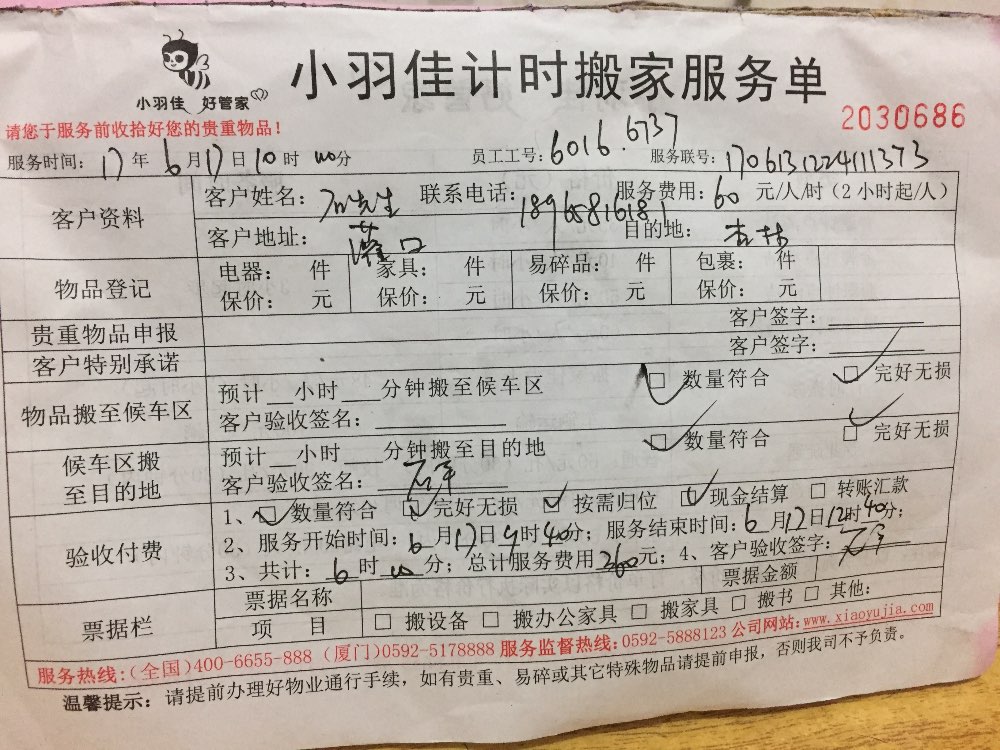 小羽佳 好管家
小羽佳计时搬家服务单
2030686
请您于服务前收拾好您的贵重物品！
服务时间：17年6月17日10时00分 员工工号：6016.6737 服务联号：1706131224111373
客户资料 客户姓名：石先生 联系电话：18965816181 服务费用：60元/人/时（2小时起/人）
客户地址：灌口 目的地：杏林
物品登记 电器： 件 家具： 件 易碎品： 件 包裹： 件
保价： 元 保价： 元 保价： 元 保价： 元
贵重物品申报 客户签字：
客户特别承诺 客户签字：
物品搬至候车区 预计__小时___分钟搬至候车区 □ 数量符合 □ 完好无损
客户验收签名：
候车区搬至目的地 预计__小时___分钟搬至目的地 □ 数量符合 □ 完好无损
客户验收签名：
验收付费 1、□ 数量符合 □ 完好无损 □ 按需归位 □ 现金结算 □ 转账汇款
2、服务开始时间：6月17日9时40分；服务结束时间：6月17日12时40分；
3、共计：6时00分；总计服务费用360元；4、客户验收签字：
票据栏 票据名称 票据金额
项 目 □ 搬设备 □ 搬办公家具 □ 搬家具 □ 搬书 □ 其他：
服务热线：(全国)400-6655-888 (厦门)0592-5178888 服务监督热线：0592-5888123 公司网站：www.xiaoyujia.com
温馨提示：请提前办理好物业通行手续，如有贵重、易碎或其它特殊物品请提前申报，否则我司不予负责。